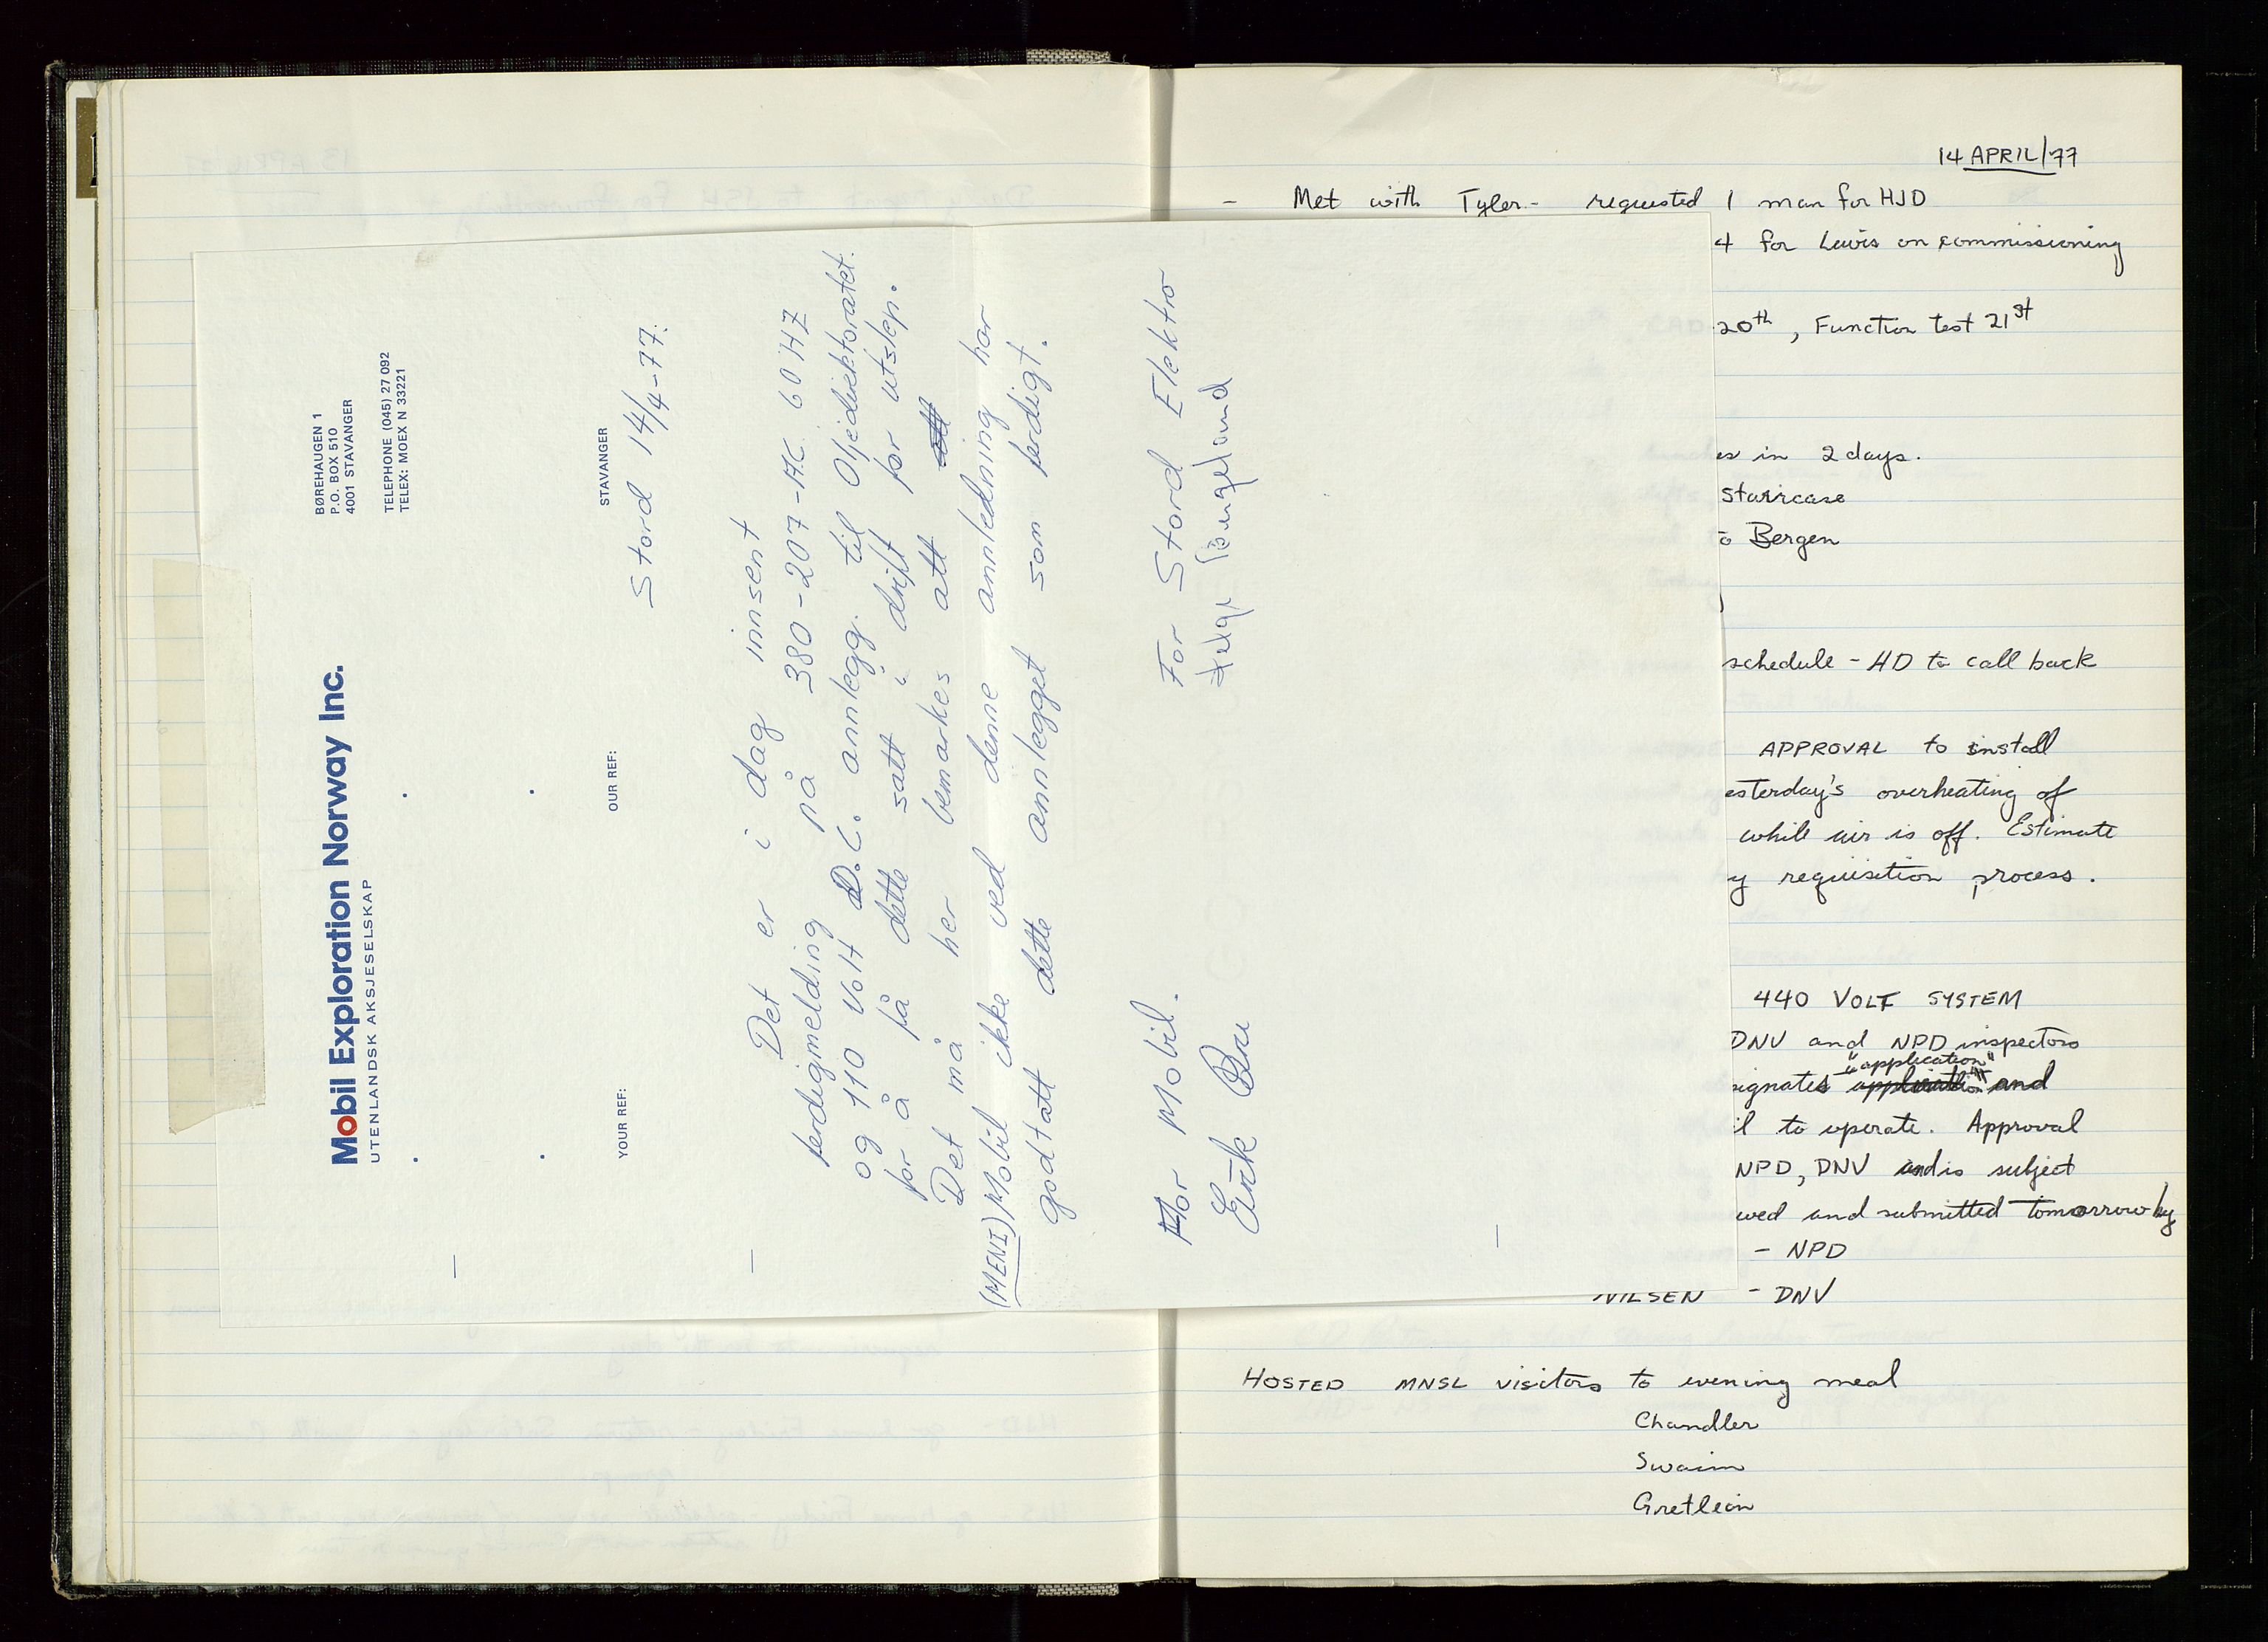 Mobil Exploration Norway Inc.
UTENLANDSK AKSJESELSKAP
BØREHAUGEN 1
P.O. BOX 510
4001 STAVANGER
TELEPHONE (045) 27 092
TELEX: MOEX N 33221
YOUR REF:
OUR REF:
STAVANGER
Stord 14/4-77.
Det er i dag innsent
ferdigmelding på 380-207-A.C. 60 HZ
og 110 Volt D.C. annlegg. til Oljedirektoratet.
for å få dette satt i drift før utslep.
Det må her bemarkes att
(MENI) Mobil ikke ved denne annledning har
godtatt dette annlegget som ferdigt.
For Mobil.
For Stord Elektro
Eirik Bru
Helge
14 APRIL/77
- Met with Tyler - requested 1 man for HJD
4 for Lewis on commissioning
20th, Function test 21st
es in 2 days.
staircase
Bergen
schedule - HD to call back
APPROVAL to install
esterday's overheating of
while air is off. Estimate
y requisition process.
440 VOLT SYSTEM
DNV and NPD inspectors
"application"
signates and
il to operate. Approval
NPD, DNV and is subject
wed and submitted tomorrow by
- NPD
NILSEN - DNV
HOSTED MNSL visitors to evening meal
Chandler
Swaim
Gretlein